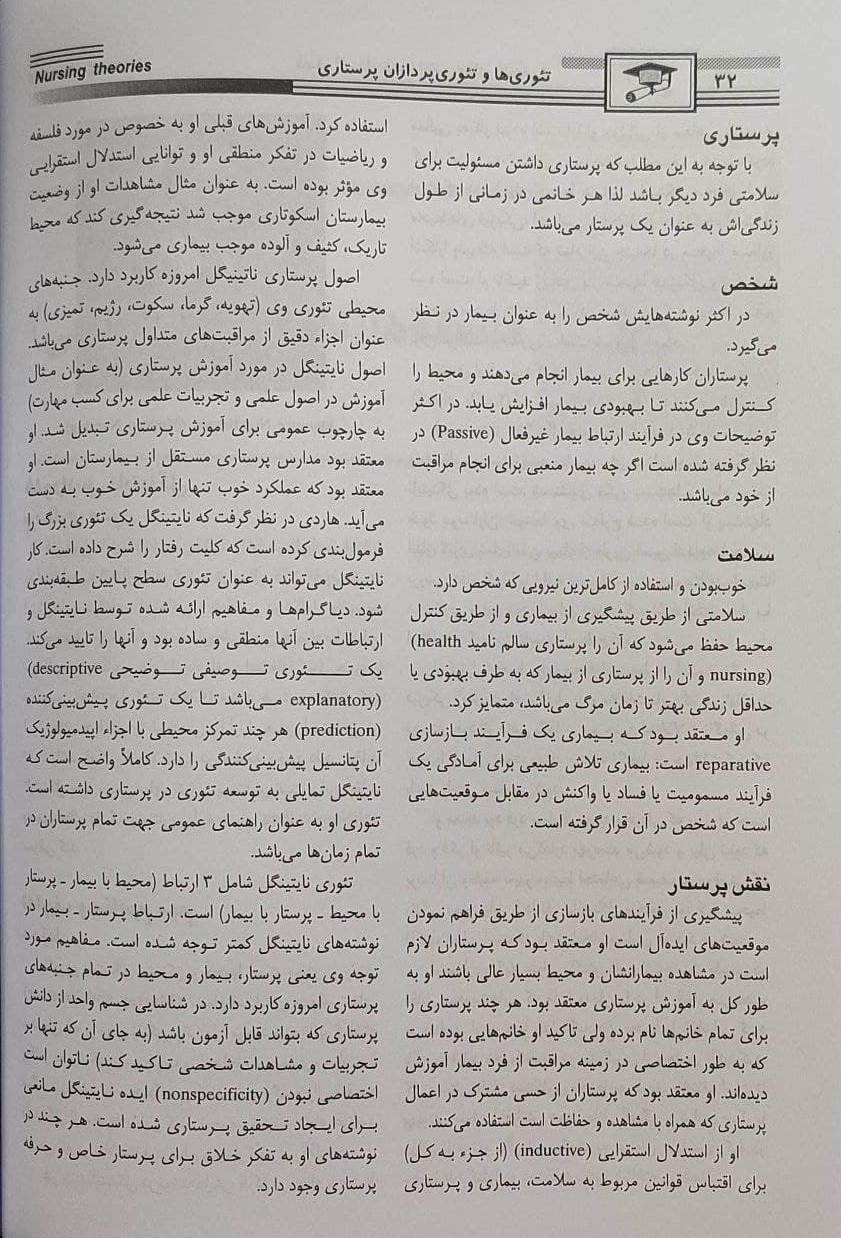 ۳۲
تئوری‌ها و تئوری‌پردازان پرستاری
Nursing theories
پرستاری
با توجه به این مطلب که پرستاری داشتن مسئولیت برای
سلامتی فرد دیگر باشد لذا هر خانمی در زمانی از طول
زندگی‌اش به عنوان یک پرستار می‌باشد.
شخص
در اکثر نوشته‌هایش شخص را به عنوان بیمار در نظر
می‌گیرد.
پرستاران کارهایی برای بیمار انجام می‌دهند و محیط را
کنترل می‌کنند تا بهبودی بیمار افزایش یابد. در اکثر
توضیحات وی در فرآیند ارتباط بیمار غیرفعال (Passive) در
نظر گرفته شده است اگر چه بیمار منعبی برای انجام مراقبت
از خود می‌باشد.
سلامت
خوب‌بودن و استفاده از کامل‌ترین نیرویی که شخص دارد.
سلامتی از طریق پیشگیری از بیماری و از طریق کنترل
محیط حفظ می‌شود که آن را پرستاری سالم نامید (health
nursing) و آن را از پرستاری از بیمار که به طرف بهبودی یا
حداقل زندگی بهتر تا زمان مرگ می‌باشد، متمایز کرد.
او معتقد بود که بیماری یک فرآیند بازسازی
reparative است: بیماری تلاش طبیعی برای آمادگی یک
فرآیند مسمومیت یا فساد یا واکنش در مقابل موقعیت‌هایی
است که شخص در آن قرار گرفته است.
نقش پرستار
پیشگیری از فرآیندهای بازسازی از طریق فراهم نمودن
موقعیت‌های ایده‌آل است او معتقد بود که پرستاران لازم
است در مشاهده بیمارانشان و محیط بسیار عالی باشند او به
طور کل به آموزش پرستاری معتقد بود. هر چند پرستاری را
برای تمام خانم‌ها نام برده ولی تاکید او خانم‌هایی بوده است
که به طور اختصاصی در زمینه مراقبت از فرد بیمار آموزش
دیده‌اند. او معتقد بود که پرستاران از حسی مشترک در اعمال
پرستاری که همراه با مشاهده و حفاظت است استفاده می‌کنند.
او از استدلال استقرایی (inductive) (از جزء به کل)
برای اقتباس قوانین مربوط به سلامت، بیماری و پرستاری
استفاده کرد. آموزش‌های قبلی او به خصوص در مورد فلسفه
و ریاضیات در تفکر منطقی او و توانایی استدلال استقرایی
وی مؤثر بوده است. به عنوان مثال مشاهدات او از وضعیت
بیمارستان اسکوتاری موجب شد نتیجه‌گیری کند که محیط
تاریک، کثیف و آلوده موجب بیماری می‌شود.
اصول پرستاری ناتینیگل امروزه کاربرد دارد. جنبه‌های
محیطی تئوری وی (تهویه، گرما، سکوت، رژیم، تمیزی) به
عنوان اجزاء دقیق از مراقبت‌های متداول پرستاری می‌باشد.
اصول نایتینگل در مورد آموزش پرستاری (به عنوان مثال
آموزش در اصول علمی و تجربیات علمی برای کسب مهارت)
به چارچوب عمومی برای آموزش پرستاری تبدیل شد. او
معتقد بود مدارس پرستاری مستقل از بیمارستان است. او
معتقد بود که عملکرد خوب تنها از آموزش خوب به دست
می‌آید. هاردی در نظر گرفت که نایتینگل یک تئوری بزرگ را
فرمول‌بندی کرده است که کلیت رفتار را شرح داده است. کار
نایتینگل می‌تواند به عنوان تئوری سطح پایین طبقه‌بندی
شود. دیاگرام‌ها و مفاهیم ارائه شده توسط نایتینگل و
ارتباطات بین آنها منطقی و ساده بود و آنها را تایید می‌کند.
یک تئوری توصیفی توضیحی (descriptive
explanatory) می‌باشد تا یک تئوری پیش‌بینی‌کننده
(prediction) هر چند تمرکز محیطی با اجزاء اپیدمیولوژیک
آن پتانسیل پیش‌بینی‌کنندگی را دارد. کاملاً واضح است که
نایتینگل تمایلی به توسعه تئوری در پرستاری داشته است.
تئوری او به عنوان راهنمای عمومی جهت تمام پرستاران در
تمام زمان‌ها می‌باشد.
تئوری نایتینگل شامل ۳ ارتباط (محیط با بیمار ـ پرستار
با محیط ـ پرستار با بیمار) است. ارتباط پرستار ـ بیمار در
نوشته‌های نایتینگل کمتر توجه شده است. مفاهیم مورد
توجه وی یعنی پرستار، بیمار و محیط در تمام جنبه‌های
پرستاری امروزه کاربرد دارد. در شناسایی جسم واحد از دانش
پرستاری که بتواند قابل آزمون باشد (به جای آن که تنها بر
تجربیات و مشاهدات شخصی تاکید کند) ناتوان است
اختصاصی نبودن (nonspecificity) ایده نایتینگل مانعی
برای ایجاد تحقیق پرستاری شده است. هر چند در
نوشته‌های او به تفکر خلاق برای پرستار خاص و حرفه
پرستاری وجود دارد.